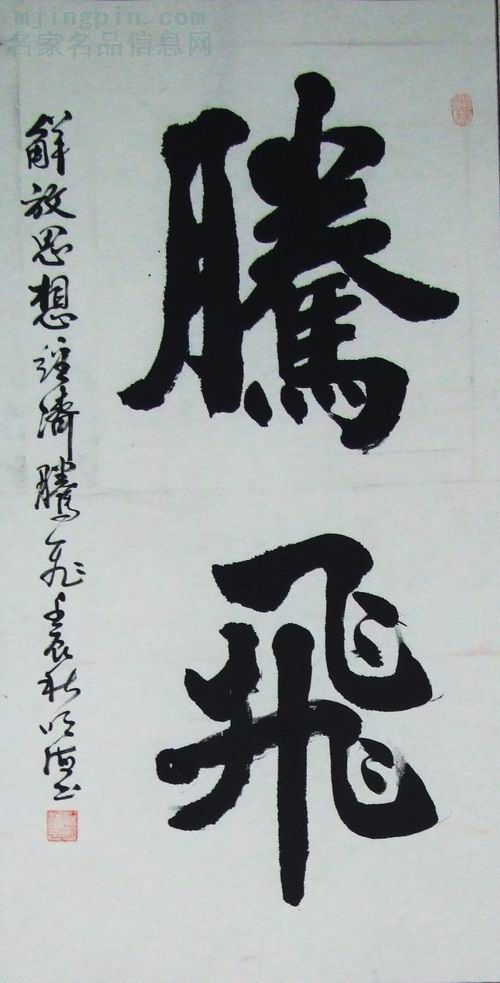 mjingpin.com
名家名品信息网
騰飛
解放思想经济騰飛壬辰秋明海书